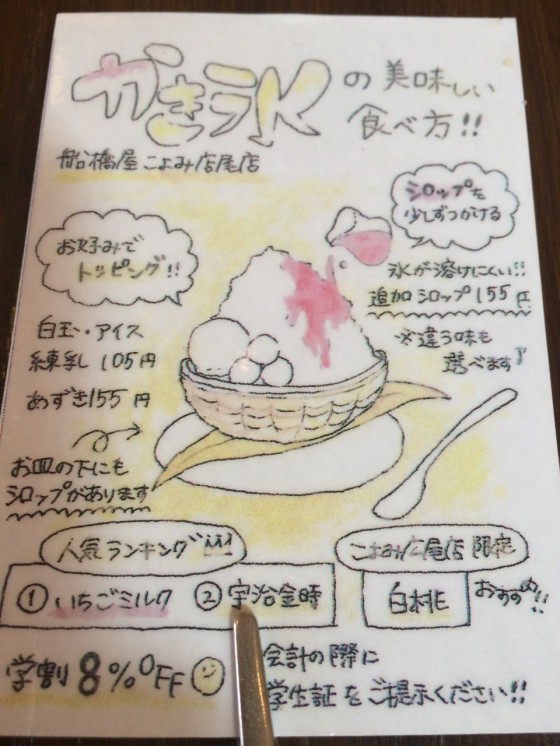 かき氷の美味しい
食べ方!!
船橋屋こよみ広尾店
シロップを
少しずつかける
お好みで
トッピング!!
氷が溶けにくい!!
追加シロップ155円
※違う味も
選べます♪
白玉・アイス
練乳 105円
あずき155円
お皿の下にも
シロップがあります
人気ランキング
①いちごミルク ②宇治金時
こよみ広尾店 限定
白桃 おすすめ!!
学割8%OFF
会計の際に
学生証をご提示ください!!